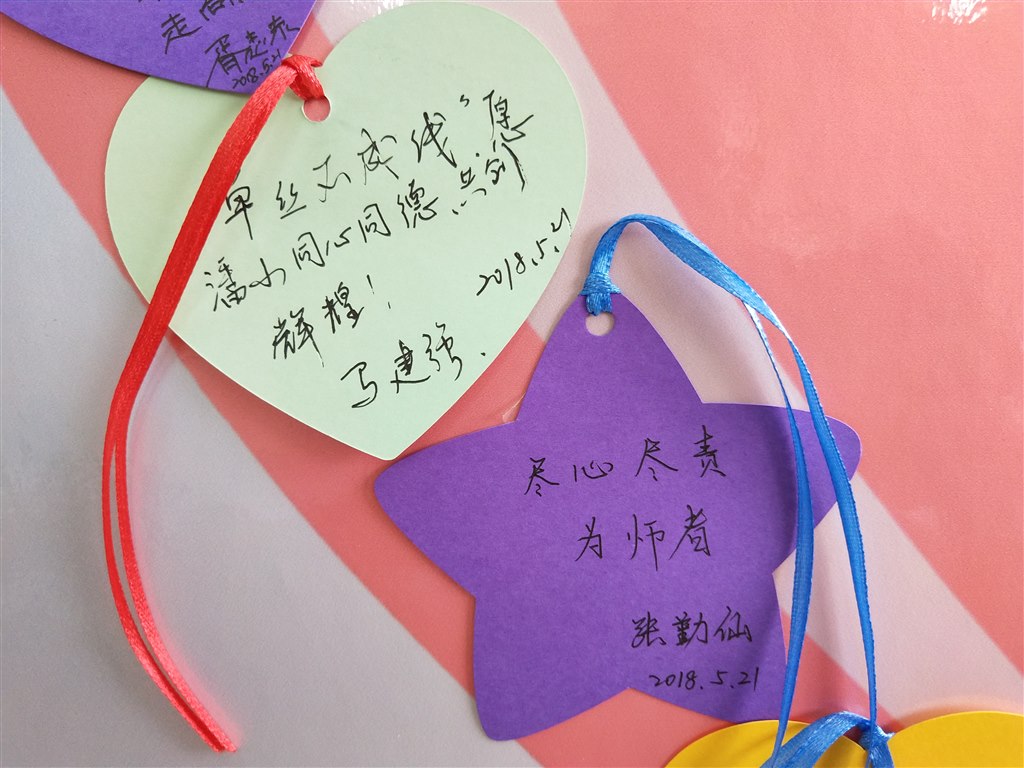 走向
2018.5.21
单丝不成线”愿
潘小同心同德共创
辉煌!
2018.5.21
马建强.
尽心尽责
为师者
张勤仙
2018.5.21